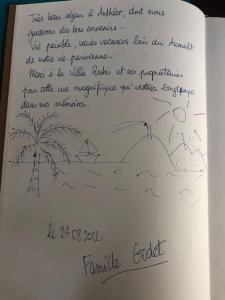 Très beau séjour à Anthéor, dont nous
garderons des bons souvenirs...
Vie paisible, vraies vacances loin du tumulte
de notre vie parisienne...
Merci à la Villa Rubis et ses propriétaires
pour cette vue magnifique qui restera longtemps
dans nos mémoires.
le 24/08/2012
Famille Godet